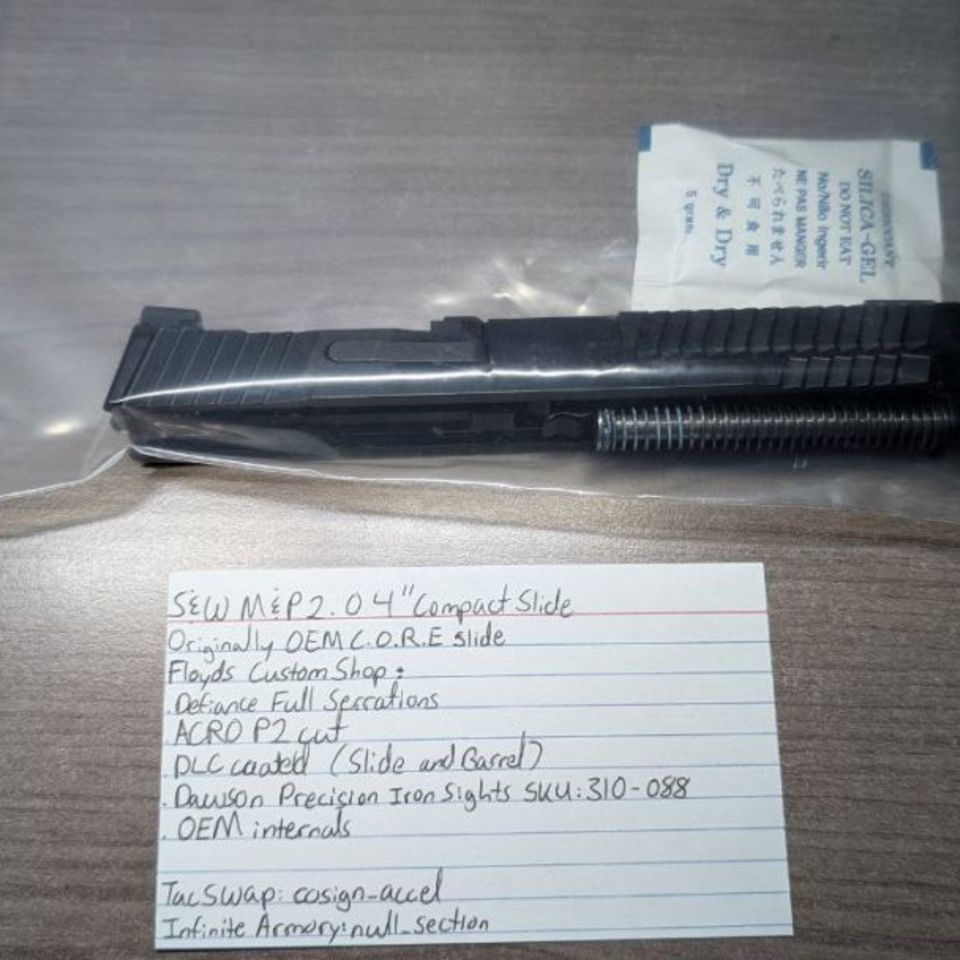 DESICCANT
SILICA-GEL
DO NOT EAT
No/Niño Ingerir
NE PAS MANGER
たべられません
不可食用
Dry & Dry
5 gram
S&W M&P 2.0 4" Compact Slide
Originally OEM C.O.R.E slide
Floyds Custom Shop:
. Defiance Full Serrations
. ACRO P2 cut
. DLC coated (Slide and Barrel)
. Dawson Precision Iron Sights SKU: 310-088
. OEM internals
TacSwap: cosign_accel
Infinite Armory: null_section